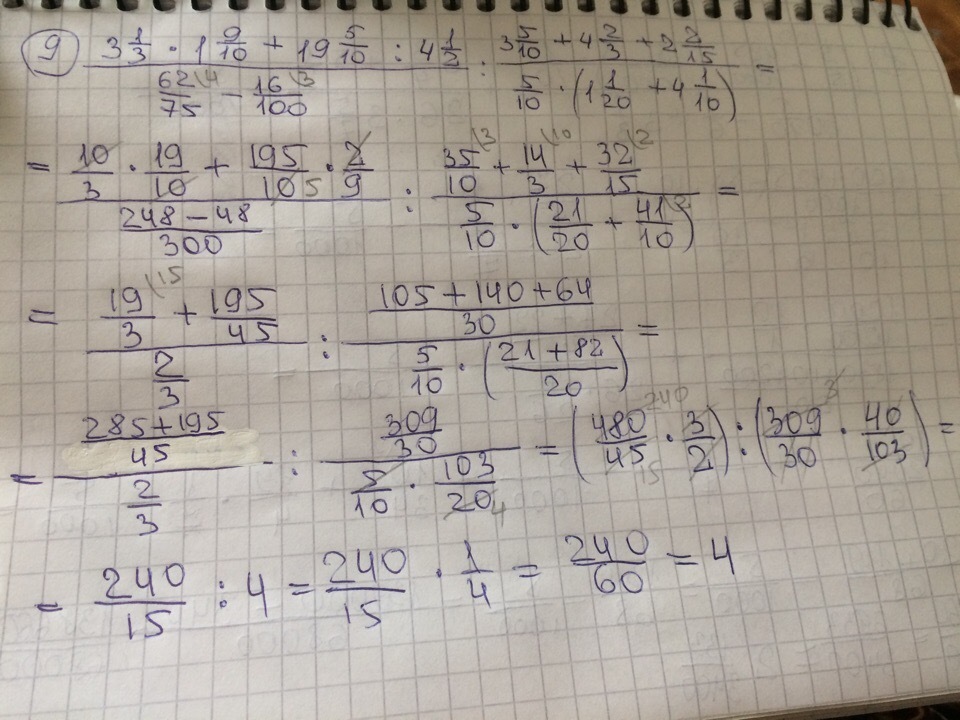 9) (3 1/3 · 1 9/10 + 19 5/10 : 4 1/2) / (62/75 (4 − 16/100 (3) : (3 5/10 + 4 2/3 + 2 2/15) / (5/10 · (1 1/20 + 4 1/10)) =
= (10/3 · 19/10 + 195/10 5 · 2/9) / ((248 − 48)/300) : (35/10 (3 + 14/3 (10 + 32/15 (2) / (5/10 · (21/20 + 41/10 (2)) =
= (19/3 (15 + 195/45) / (2/3) : ((105 + 140 + 64)/30) / (5/10 · ((21 + 82)/20)) =
= ((285 + 195)/45) / (2/3) : (309/30) / (5/10 · 103/20 4) = (480/45 240 15 · 3/2) : (309/30 3 · 40/103) =
= 240/15 : 4 = 240/15 · 1/4 = 240/60 = 4